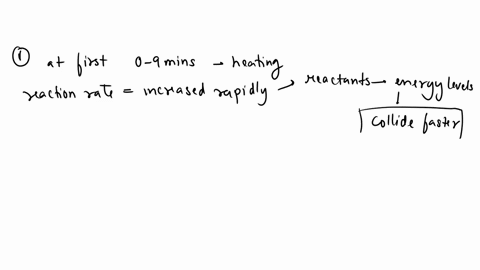 ① at first 0-9mins → heating
reaction rate = increased rapidly → reactants → energy levels
↓
collide faster